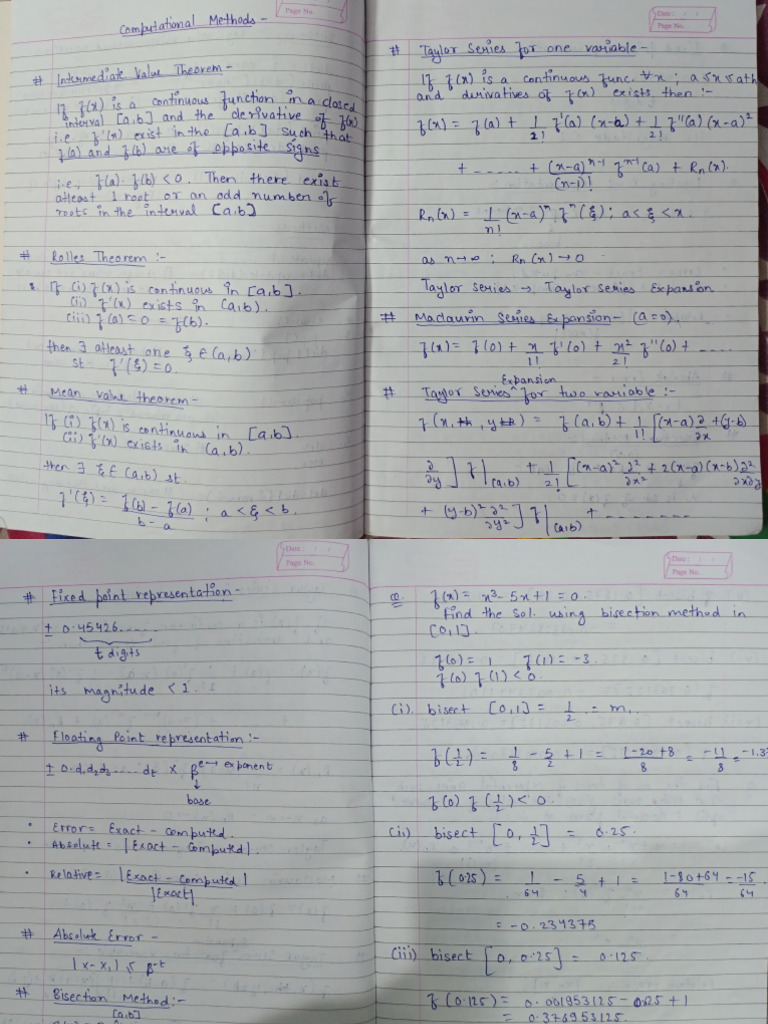 Page No.
Computational Methods -
# Intermediate Value Theorem -
If f(x) is a continuous function in a closed
interval [a,b] and the derivative of f(x)
i.e f'(x) exist in the [a,b] such that
f(a) and f(b) are of opposite signs
i.e., f(a). f(b) < 0. Then there exist
atleast 1 root or an odd number of
roots in the interval [a,b]
# Rolles Theorem :-
If (i) f(x) is continuous in [a,b].
(ii) f'(x) exists in (a,b).
(iii) f(a) = 0 = f(b).
then ∃ atleast one ξ ∈ (a,b)
st f'(ξ) = 0.
# Mean value theorem -
If (i) f(x) is continuous in [a,b].
(ii) f'(x) exists in (a,b).
then ∃ ξ ∈ (a,b) st.
f'(ξ) = f(b) - f(a) / b - a ; a < ξ < b.
Date : / /
Page No.
# Taylor Series for one variable -
If f(x) is a continuous func. ∀x ; a ≤ x ≤ a+h
and derivatives of f(x) exists, then :-
f(x) = f(a) + 1/2! f'(a) (x-a) + 1/2! f''(a) (x-a)²
+ ...... + (x-a)ⁿ⁻¹/(n-1)! fⁿ⁻¹(a) + Rn(x).
Rn(x) = 1/n! (x-a)ⁿ fⁿ(ξ) ; a < ξ < x.
as n → ∞ ; Rn(x) → 0
Taylor Series → Taylor Series Expansion
# Maclaurin Series Expansion - (a=0).
f(x) = f(0) + x/1! f'(0) + x²/2! f''(0) + ....
# Taylor Series Expansion for two variable :-
f(x, y) = f(a,b) + 1/1! [(x-a) ∂/∂x + (y-b)
∂/∂y] f|(a,b) + 1/2! [(x-a)² ∂²/∂x² + 2(x-a)(x-b) ∂²/∂x∂y
+ (y-b)² ∂²/∂y²] f|(a,b) + .......
Date : / /
Page No.
# Fixed point representation -
± 0.45426......
t digits
its magnitude < 1.
# Floating Point representation :-
± 0.d₁d₂d₃.... dt × βᵉ → exponent
↓
base
• Error = Exact - computed.
• Absolute = |Exact - Computed|.
• Relative = |Exact - Computed| / |Exact|
# Absolute Error -
|x - x₁| ≤ β⁻ᵗ
# Bisection Method :-
[a,b]
Date : / /
Page No.
Q. f(x) = x³ - 5x + 1 = 0.
Find the Sol. using bisection method in
[0,1].
f(0) = 1 f(1) = -3
f(0) f(1) < 0.
(i). bisect [0,1] = 1/2 = m₁
f(1/2) = 1/8 - 5/2 + 1 = 1-20+8/8 = -11/8 = -1.3
f(0) f(1/2) < 0
(ii) bisect [0, 1/2] = 0.25.
f(0.25) = 1/64 - 5/4 + 1 = 1-80+64/64 = -15/64
= -0.234375
(iii) bisect [0, 0.25] = 0.125.
f(0.125) = 0.001953125 - 0.625 + 1
= 0.376953125.